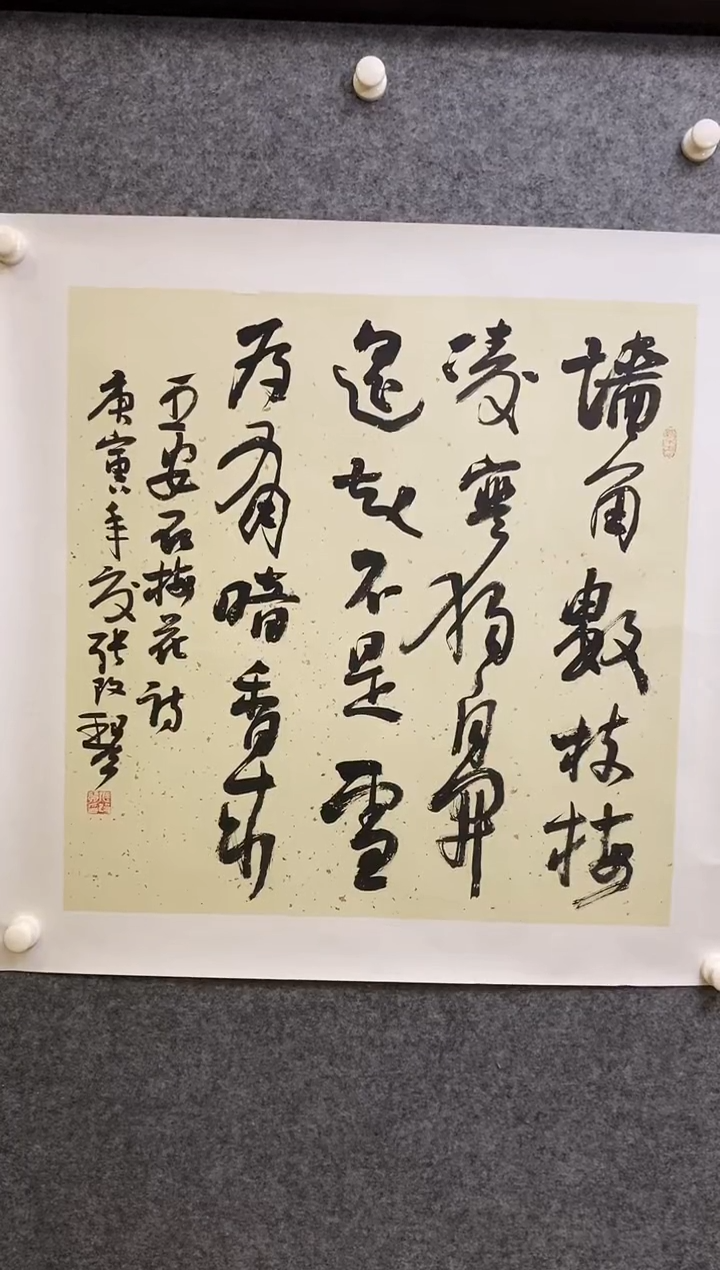 墙角數枝梅
凌寒独自開
遥知不是雪
为有暗香来
王安石梅花诗
庚寅年夏张改琴